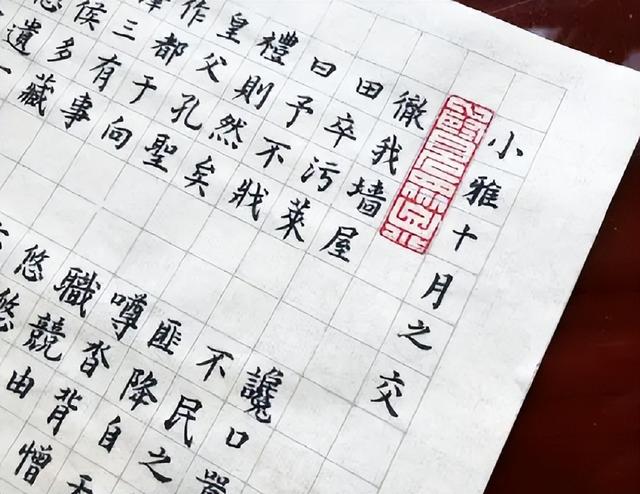 小雅十月之交
徹我墙屋
田卒污萊
曰予不戕
禮則然矣
皇父孔聖
作都于向
三有事
侯多藏
遺一
讒口
不民之
匪降自天
噂沓背憎
職競由
悠悠